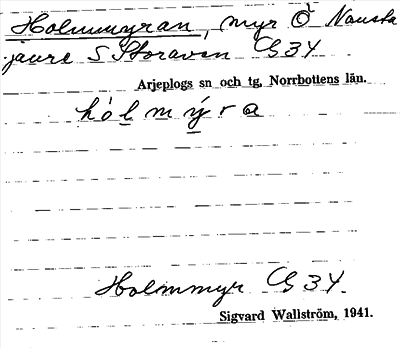 Holmmyran, myr Ö Nausta
jaure S Storaven G 34
Arjeplogs sn och tg, Norrbottens län.
hólmýra
Holmmyr G 34.
Sigvard Wallström, 1941.